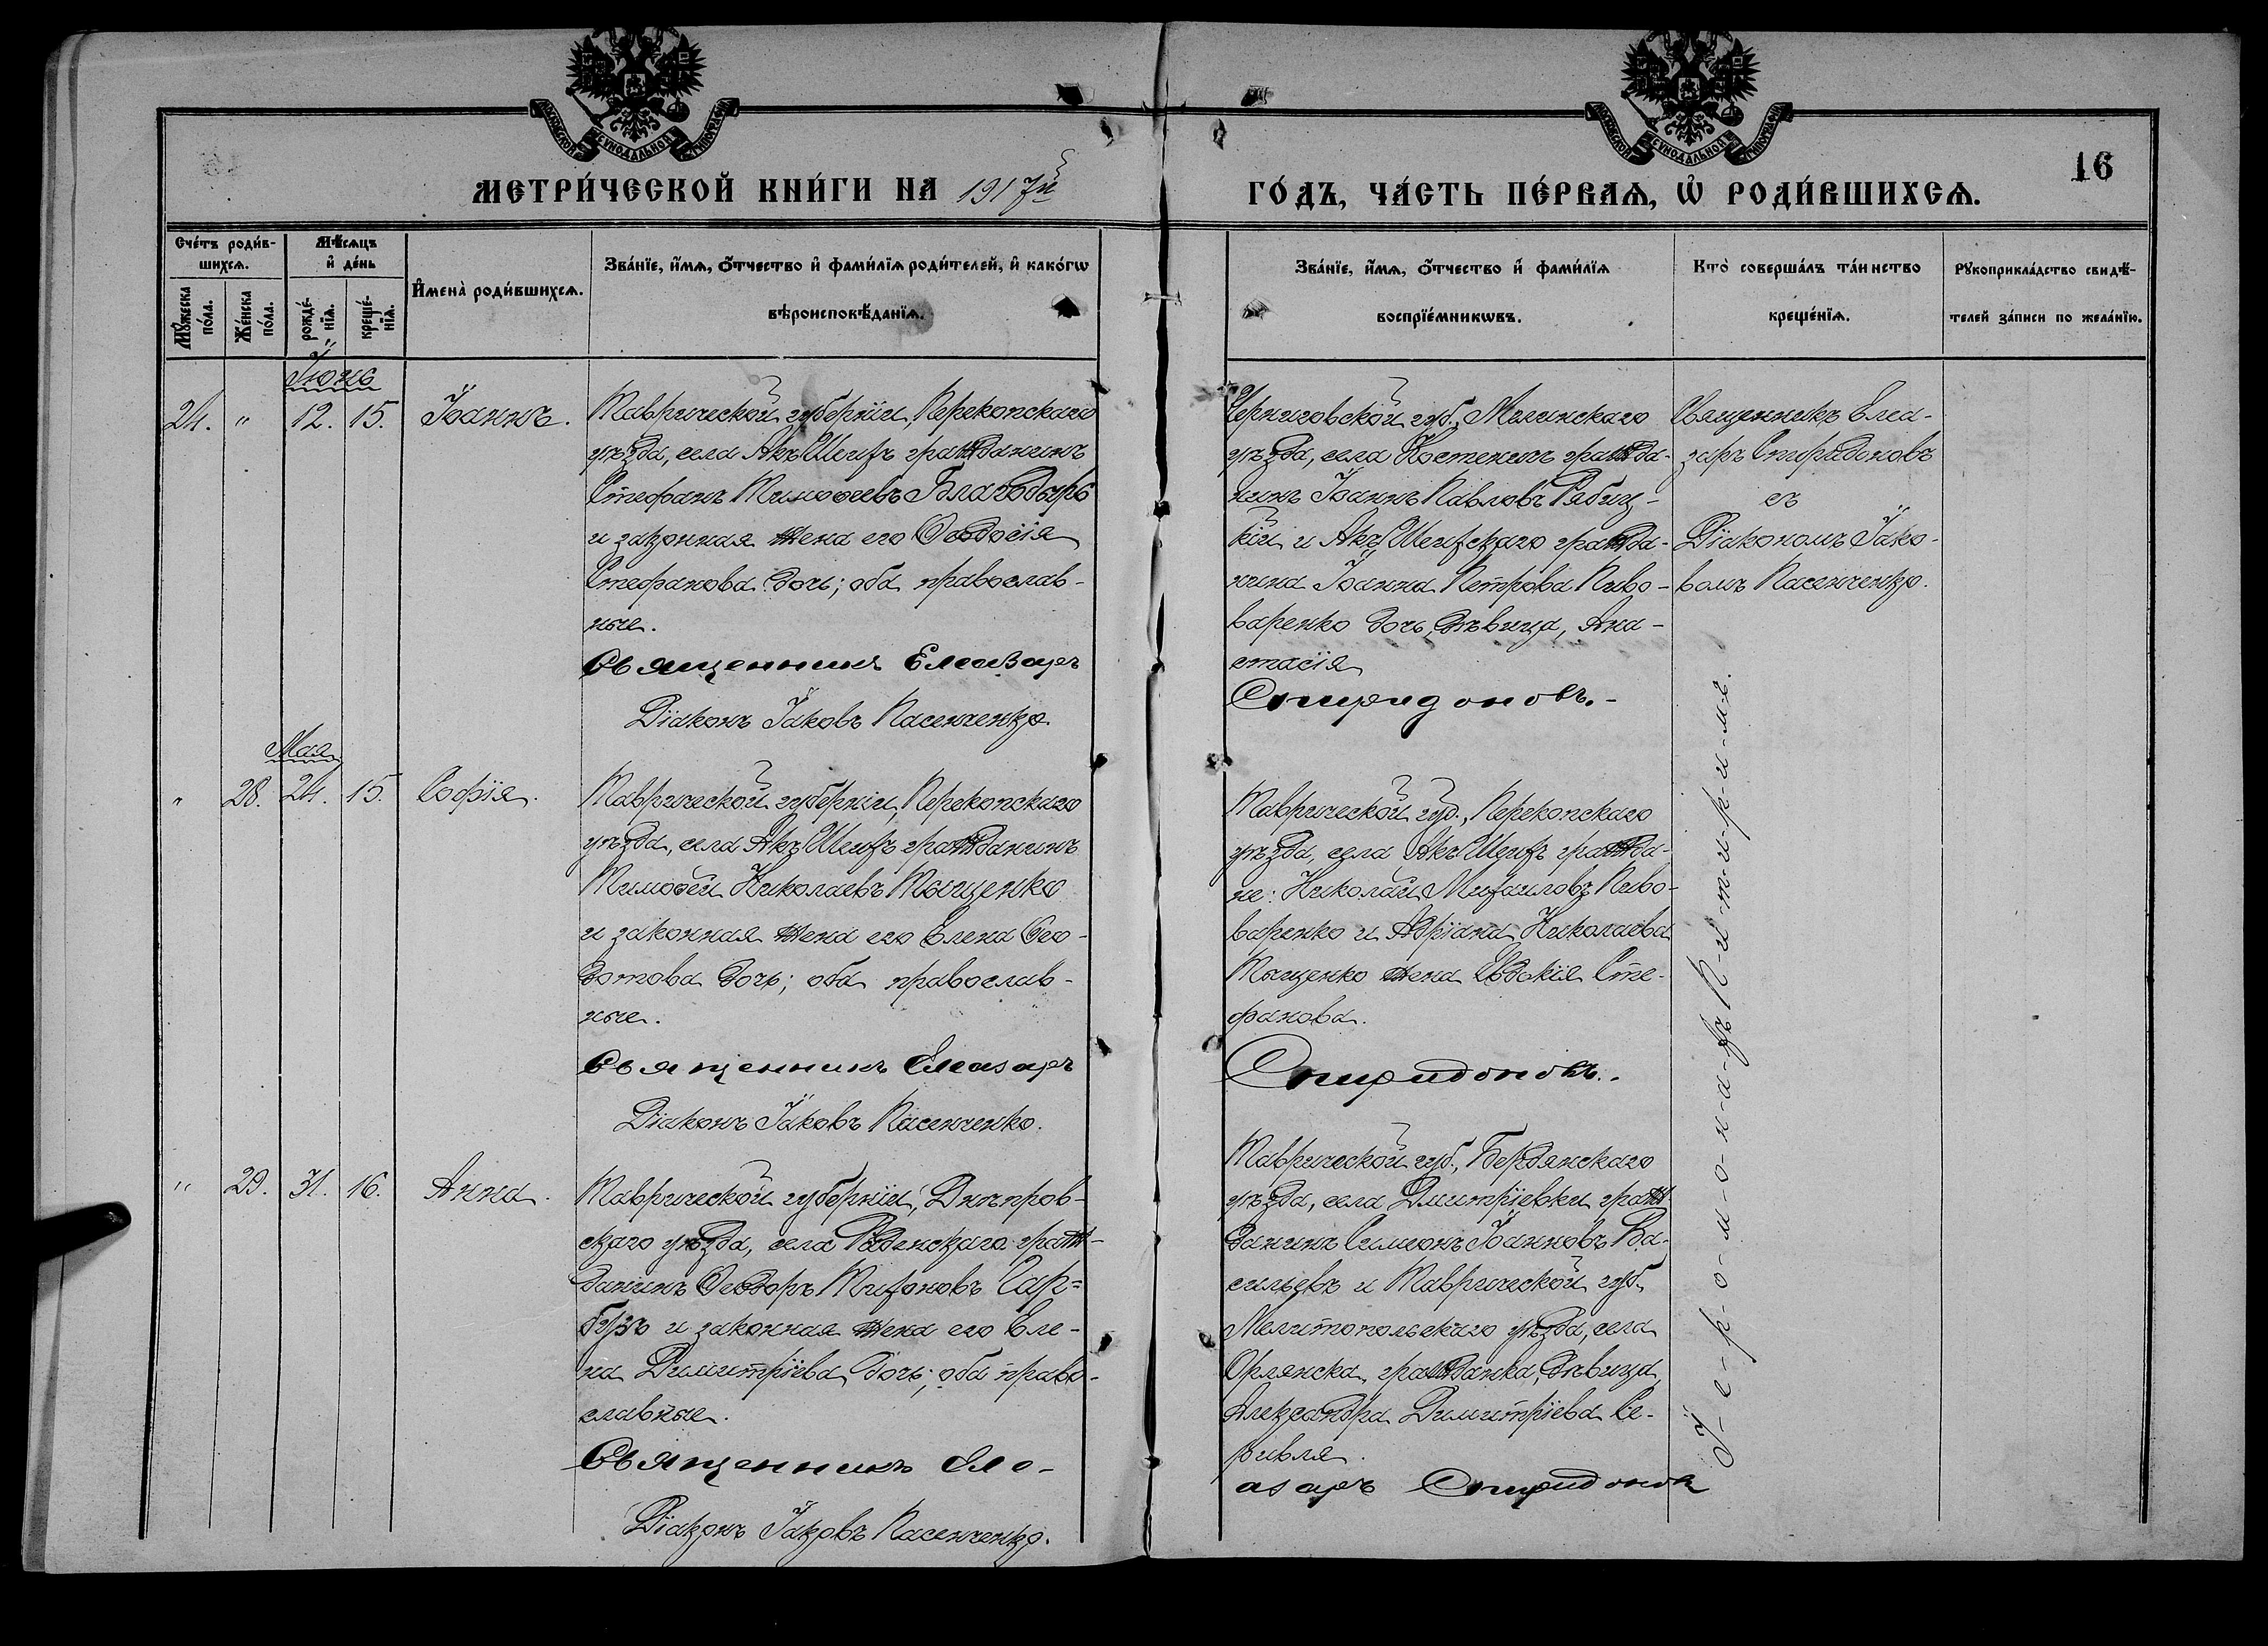 МЕТРИ́ЧЕСКОЙ КНИ́ГИ НА 1917й
ГО́ДЪ, ЧА́СТЬ ПЕ́РВАѦ, Ѡ҆ РОДИ́ВШИХСѦ.
16
Сче́тъ роди́в-
шихсѧ.
Мꙋ́жеска по́ла.
Же́нска по́ла.
Мѣ́сѧцъ
и҆ де́нь
рожде́-
нїѧ.
креще́-
нїѧ.
И҆мена̀ роди́вшихсѧ.
Зва́нїе, и҆́мѧ, ѻ҆́тчество и҆ фами́лїѧ роди́телей, и҆ како́гѡ
вѣроисповѣ́данїѧ.
Зва́нїе, и҆́мѧ, ѻ҆́тчество и҆ фами́лїѧ
воспрїе́мникѡвъ.
Кто̀ соверша́лъ та́инство
креще́нїѧ.
Рꙋкоприкла́дство свидѣ́-
телей за́писи по жела́нїю.
Іюнь
24. " 12. 15. Іоаннъ.
Таврической губерніи, Перекопскаго
уѣзда, села Акъ Шеихъ гражданинъ
Стефанъ Тимоѳеевъ Благодыръ
и законная жена его Ѳеодосія
Стефанова дочь; оба православ-
ные.
Священникъ Елеазаръ
Діаконъ Іаковъ Пасенченко.
Черниговской губ., Мглинскаго
уѣзда, села Костеничъ гражда-
нинъ Іоаннъ Павловъ Рябиц-
кій и Акъ Шеихскаго гражда-
нина Іоанна Петрова Пиво-
варенко дочь, дѣвица, Ана-
стасія
Спиридоновъ.-
Священникъ Елеа-
заръ Спиридоновъ
съ
Діакономъ Іако-
вомъ Пасенченко.
Мая
" 28. 24. 15. Софія.
Таврической губерніи, Перекопскаго
уѣзда, села Акъ Шеихъ гражданинъ
Тимоѳей Николаевъ Тыщенко
и законная жена его Елена Ѳео-
дотова дочь; оба православ-
ные.
Священникъ Елеазаръ
Діаконъ Іаковъ Пасенченко.
Таврической губ., Перекопскаго
уѣзда, села Акъ Шеихъ гражда-
не: Николай Михаиловъ Пиво-
варенко и Адріана Николаева
Тыщенко жена Евдокія Сте-
фанова.
Спиридоновъ.
" 29. 31. 16. Анна.
Таврической губерніи, Днѣпров-
скаго уѣзда, села Раденскаго граж-
данинъ Ѳеодоръ Тихоновъ Сар-
бузъ и законная жена его Еле-
на Димитріева дочь; оба право-
славные.
Священникъ Еле-
Діаконъ Іаковъ Пасенченко.
Таврической губ., Бердянскаго
уѣзда, села Димитріевки граж-
данинъ Симеонъ Іоанновъ Ва-
сильевъ и Таврической губ.
Мелитопольскаго уѣзда, села
Орлянска, гражданка, дѣвица,
Александра Димитріева Се-
ривля.
азаръ Спиридоновъ
І-е-р-о-м-о-н-а-хъ